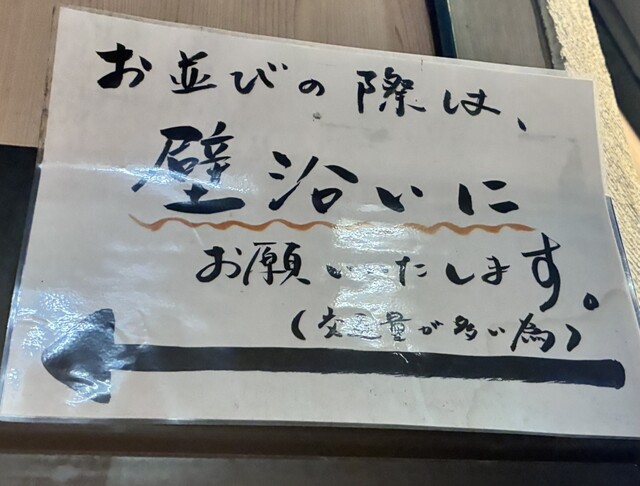 お並びの際は、
壁沿いに
お願いいたします。
(交通量が多い為)